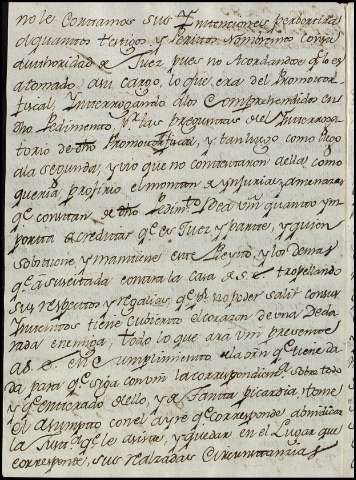 no le Contamos sus Yntenciones perbertida
a quantos testigos y Peritos Nombrino con su
authoridad de Juez pues no Acordandose qe lo es
a tomado a su cargo, lo que era del Promotor
fiscal, Ynterrogando a los Comprehendidos en
dho Pedimento Pr. las preguntas del Ynterroga-
torio de dho Promotor fiscal, y tan luego como llego
a la segunda, y vio que no contextaron a ella, como
queria, profirio el monton de ynjurias, y amenazas
qe constan de dho Pedimto Ydea vm quanto ym-
porta acreditar qe es Juez y parte, y quien
sobstiene y mantiene este Pleyto, y los demas
qe a suscitada contra la casa de S. E. tropellando
sus respectos y regalias; qe pr no poder salir con sus
Yntentos tiene cubierto el corazon de una decla-
rada enemiga. Todo lo que ara vm presente
a S. E. en cumplimiento a la orn qe tiene da
da para qe siga con vm la correspondiencia sobre todo
y qe enterado de ello, y de tanta picardia, tome
el asumpto con el ayre qe corresponde a bindicar
la Justa qe le asiste, y quedar en el Lugar que
corresponde, sus realzadas Circunstancias